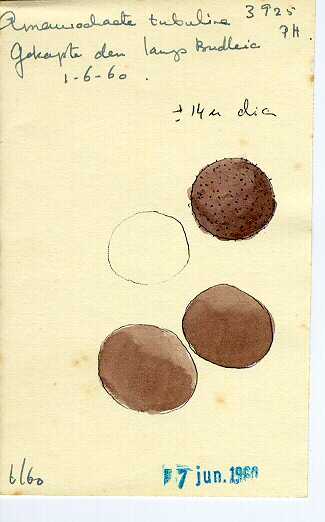 Amaurochaete tubulina 3925
Gekapte den langs Brudleia PH.
1-6-60.
± 14 µ dia
6/60
17 jun. 1960